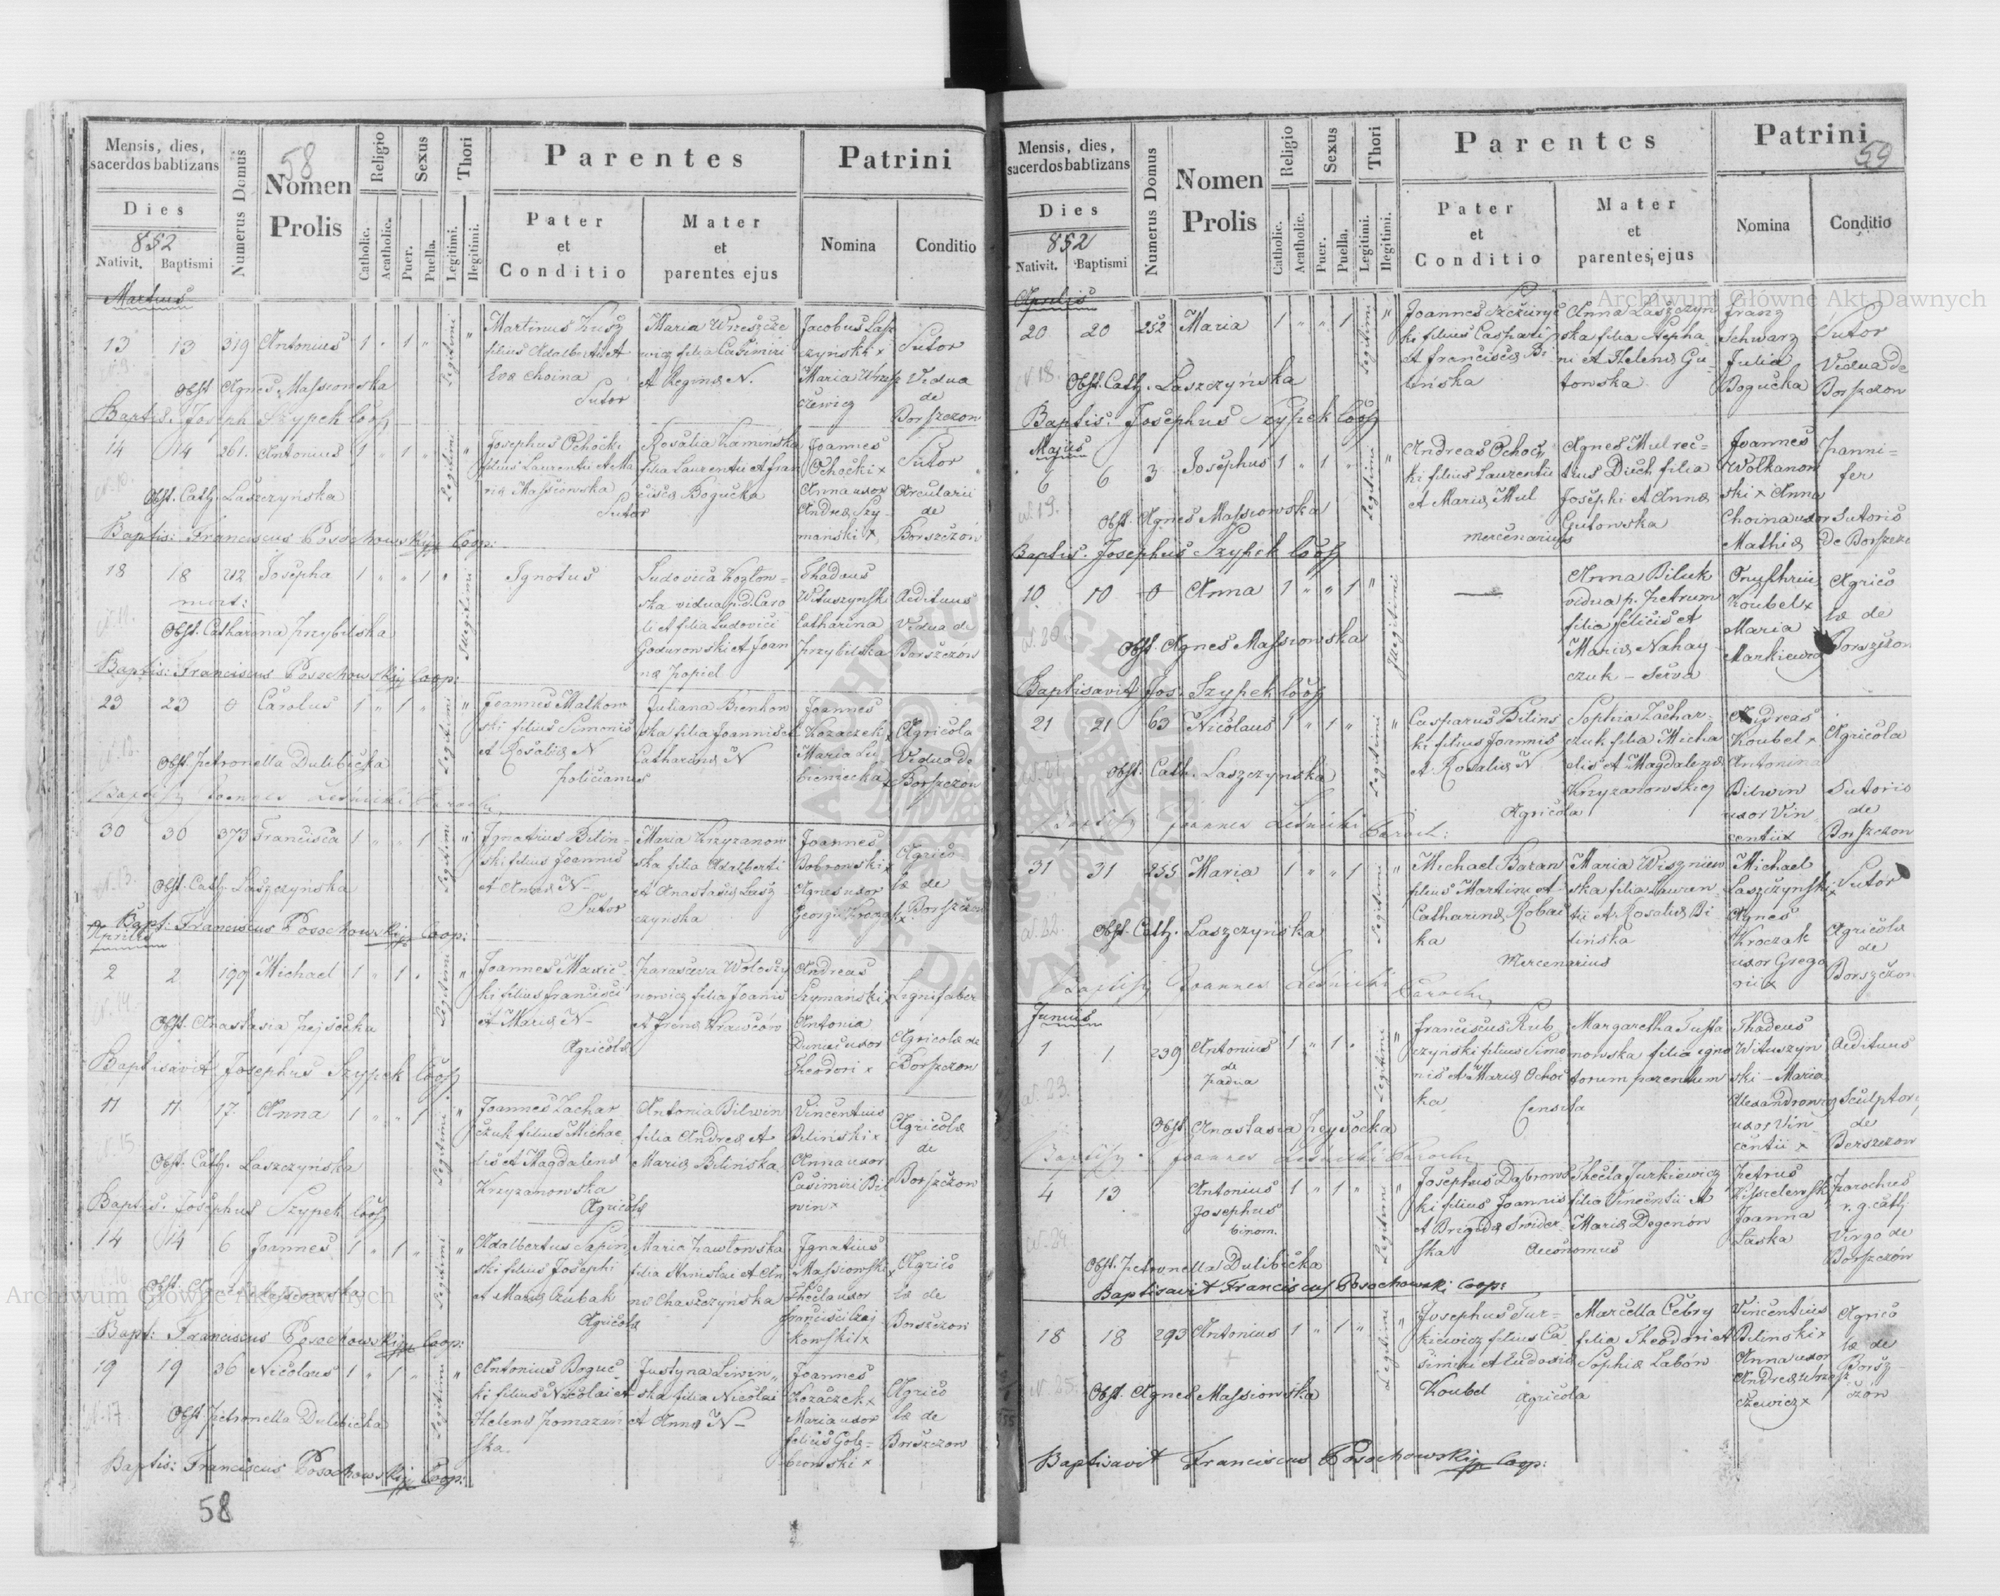 58
Mensis, dies,
sacerdos babtizans
Numerus Domus
Nomen
Prolis
Religio
Sexus
Thori
Parentes
Patrini
Dies
852
Nativit. Baptismi
Catholic.
Acatholic.
Puer.
Puella.
Legitimi.
Illegitimi.
Pater
et
Conditio
Mater
et
parentes ejus
Nomina
Conditio
Martius
13 13 319 Antonius 1 " 1 " Legitimi "
Martinus
filius Adalberti et
Eva Choina
Sutor
Maria Wrzeszcze
wicz filia Casimiri
et Regina N.
Jacobus Las
zczyński x
Maria Wrzesz
czewicz
Sutor
Vidua
de
Borszczow
Obst. Agnes Massiowska
Baptis. Joseph Szypek Coop
14 14 261. Antonius 1 " 1 " Legitimi "
Josephus Ochocki
filius Laurentii et Ma
ria Massiowska
Sutor
Rosalia Kaminska
filia Laurentii et Fran
cisca Bogucka
Joannes
Ochocki x
Anna uxor
Andrea Szy
manski x
Sutor
Arcularii
de
Borszczów
Obst. Cath. Laszczyńska
Baptis: Franciscus Posochowskij Coop:
18 18 212 Josepha 1 " " 1 " Illegitimi
mort:
Ignotus
Ludovica
ska vidua p.d. Caro
li et filia Ludovici
Godurowski et Joan
na Popiel
Thadaus
Wituszynski
Catharina
Przybilska
Aedituus
Vidua de
Borszczow
Obst. Catharina Przybilska
Baptis: Franciscus Posochowskij Coop:
23 23 0 Carolus 1 " 1 " Legitimi "
Joannes Malkow
ski filius Simonis
et Rosalia N
Policianus
Juliana Bienkow
ska filia Joannis et
Catharina N
Joannes
Kozaczek x
Maria Lu
bieniecka x
Agricola
Vidua de
Borszczów
Obst. Petronella Dulibecka
Baptis. Joannes Lesnicki Paroch
30 30 373 Francisca 1 " " 1 Legitimi "
Ignatius Bilin-
ski filius Joannis
et Anna N-
Sutor
Maria Krzyzanow
ska filia Adalberti
et Anastasia Lasz
czynska
Joannes
Bobrowski x
Agnes uxor
Georgii
Agrico
la de
Borszczów
Obst. Cath. Laszczyńska
Bapt: Franciscus Posochowskij Coop:
Aprilis
2 2 199 Michael 1 " 1 " Legitimi "
Joannes
ki filius Francisci
et Maria N-
Agricola
Parasceva Woloszy
nowicz filia Joannis
et Irena
Andreas
Szymanski x
Antonia
Dunac uxor
Theodori x
Lignifaber
Agricola de
Borszczow
Obst. Anastasia Pejsocka
Baptisavit Josephus Szypek Coop
11 11 17. Anna 1 " " 1 Legitimi "
Joannes Zachar
czuk filius Michae
lis et Magdalena
Krzyzanowska
Agricola
Antonia Bilwin
filia Andrea et
Maria Bilińska
Vincentius
Biliński x
Anna uxor
Casimiri Bi
win x
Agricola
de
Borszczow
Obst. Cath. Laszczyńska
Baptis: Josephus Szypek Coop
14 14 6 Joannes 1 " 1 " Legitimi "
Adalbertus Sapin
ski filius Josephi
et Maria Czubak
Agricola
Maria Pawłowska
filia Stanislai et An
na Chaszczyńska
Ignatius
Massiowski x
Thecla uxor
Francisci Czaj
kowski x
Agrico
la de
Borszczow
Obst. Agnes Massiowska
Bapt: Franciscus Posochowskij Coop:
19 19 36 Nicolaus 1 " 1 " Legitimi "
Antonius Boguc
ki filius Nicolai et
Helena Pomazań
ska
Justyna Liwin
ska filia Nicolai
et Anna N-
Joannes
Kozaczek x
Maria uxor
Golę-
biowski x
Agrico
la de
Borszczow
Obst. Petronella Dulibecka
Baptis: Franciscus Posochowskij Coop:
58
59
Mensis, dies,
sacerdos babtizans
Numerus Domus
Nomen
Prolis
Religio
Sexus
Thori
Parentes
Patrini
Dies
852
Nativit. Baptismi
Catholic.
Acatholic.
Puer.
Puella.
Legitimi.
Illegitimi.
Pater
et
Conditio
Mater
et
parentes ejus
Nomina
Conditio
Aprilis
20 20 252 Maria 1 " " 1 Legitimi "
Joannes Szczuryc
ki filius Caspari
et Francisca Bi
lińska
Anna Laszczyn
ska filia Stepha
ni et Helena Gu
towska
Franz
Schwarz
Julia
Bogucka
Sutor
Vidua de
Borszczow
N 18.
Obst. Cath. Laszczyńska
Baptis: Josephus Szypek Coop
Majus
6 6 3 Josephus 1 " 1 " Legitimi "
Andreas Ochoc
ki filius Laurentii
et Maria Mul
mercenarius
Agnes Mul rec-
tius Diuk filia
Josephi et Anna
Gutowska
Joannes
Wolkanow
ski x Anna
Choina uxor
Mathia
Panni-
fer
Sutoris
de Borszcz
N 19.
Obst. Agnes Massiowska
Baptis. Josephus Szypek Coop
10 10 0 Anna 1 " " 1 " Illegitimi
Anna Biluk
vidua p. Petrum
filia Felicis et
Maria Nahay
czuk - Serva
Onuphrius
Koubel x
Maria
Markiewicz
Agrico
la de
Borszczow
N 20.
Obst. Agnes Massiowska
Baptisavit Jos: Szypek Coop
21 21 63 Nicolaus 1 " 1 " Legitimi "
Casparus Bilins
ki filius Joannis
et Rosalia N
Agricola
Sophia Zachar
czuk filia Micha
elis et Magdalena
Andreas
Koubel x
Antonina
Bilwin
uxor Vin
centii x
Agricola
Sutoris
de
Borszczow
Obst. Cath. Laszczynska
Baptis. Joannes Lesnicki Paroch:
31 31 255 Maria 1 " " 1 Legitimi "
Michael Baran
filius Martini et
Catharina
ka
Mercenarius
Maria Wiszniew
ska filia Lauren
tii et Rosalia Bi
lińska
Michael
Laszczyński x
Agnes
Kroczak
uxor Grego
rii x
Sutor
Agricola
de
Borszczow
N 22.
Obst. Cath. Laszczyńska
Baptis. Joannes Lesnicki Paroch
Junius
1 1 239 Antonius 1 " 1 " Legitimi "
de
Padua
Franciscus Rub
czyński filius Simo
nis et Maria Ochoc
ka
Margaretha
nowska filia igno
torum parentum
Thadeus
Wituszyn
ski - Maria
Alexandrowicz
uxor Vin
centii x
Aedituus
Sculptoris
de
Borszczow
N 23.
Obst. Anastasia Pejsocka
Baptis. Joannes Lesnicki Paroch
4 13 Antonius 1 " 1 " Legitimi "
Josephus
binom.
Josephus Dąbrows
ki filius Joannis
et Brigida Swider
ska
Oeconomus
Thecla Jurkiewicz
filia Vincentii et
Maria Degenon
Petrus
Joanna
Laska
Parochus
r. g. cath
Virgo de
Borszczów
N 24.
Obst. Petronella Dulibecka
Baptisavit Franciscus Posochowski Coop:
18 18 293 Antonius 1 " 1 " Legitimi "
Josephus Jur-
kiewicz filius Ca
simiri et Ludovica
Koubel
Agricola
Marcella Cebry
filia Theodori et
Sophia Labów
Vincentius
Bilinski x
Anna uxor
Andrea Wrzesz
czewicz x
Agrico
la de
Borsz-
czów
N 25.
Obst. Agnes Massiowska
Baptisavit Franciscus Posochowskij Coop:
Archiwum Główne Akt Dawnych
Archiwum Główne Akt Dawnych